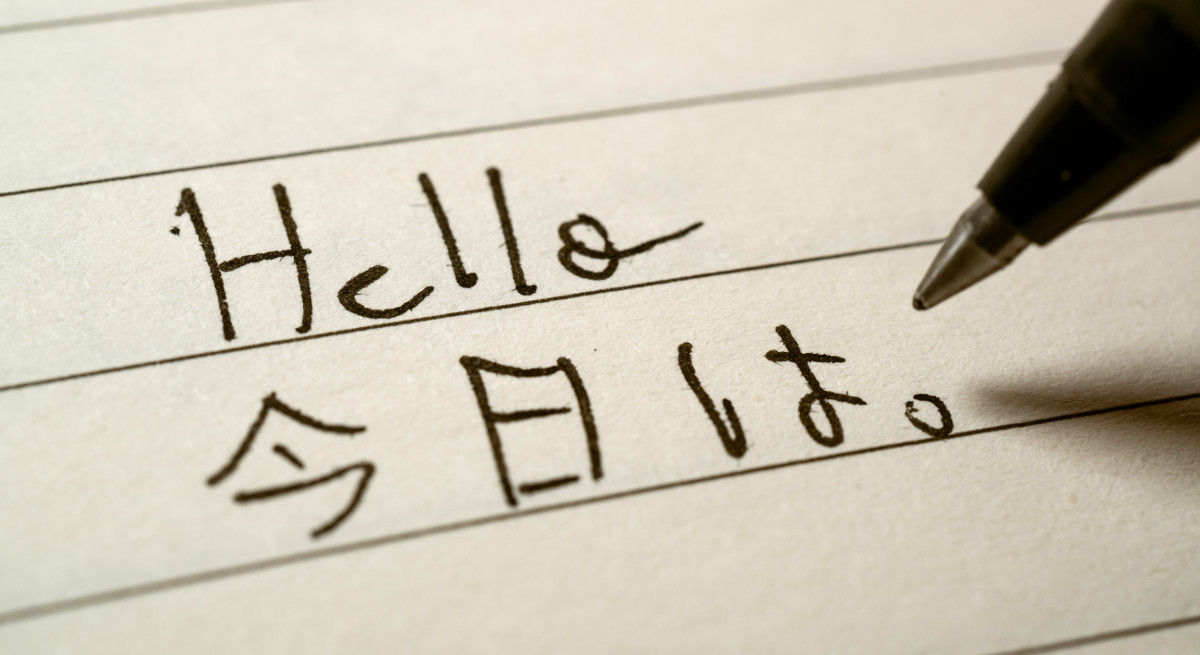 Hello
今日は。